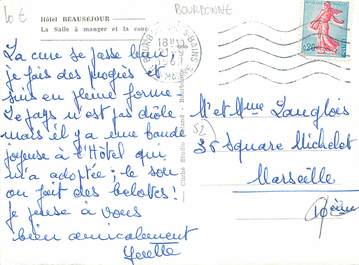 10 €
BOURBONNE
Hôtel BEAUSEJOUR
La Salle à manger et la
La cure se passe bien,
je fais des progrès et
suis en pleine forme
Le pays n'est pas drôle
mais il y a une bande
joyeuse à l'Hôtel qui
m'a adoptée; le soir
on fait des belotes!
je pense à vous
bien amicalement
0,20
52
Mr et Mme Langlois
35 Square Michelet
Marseille